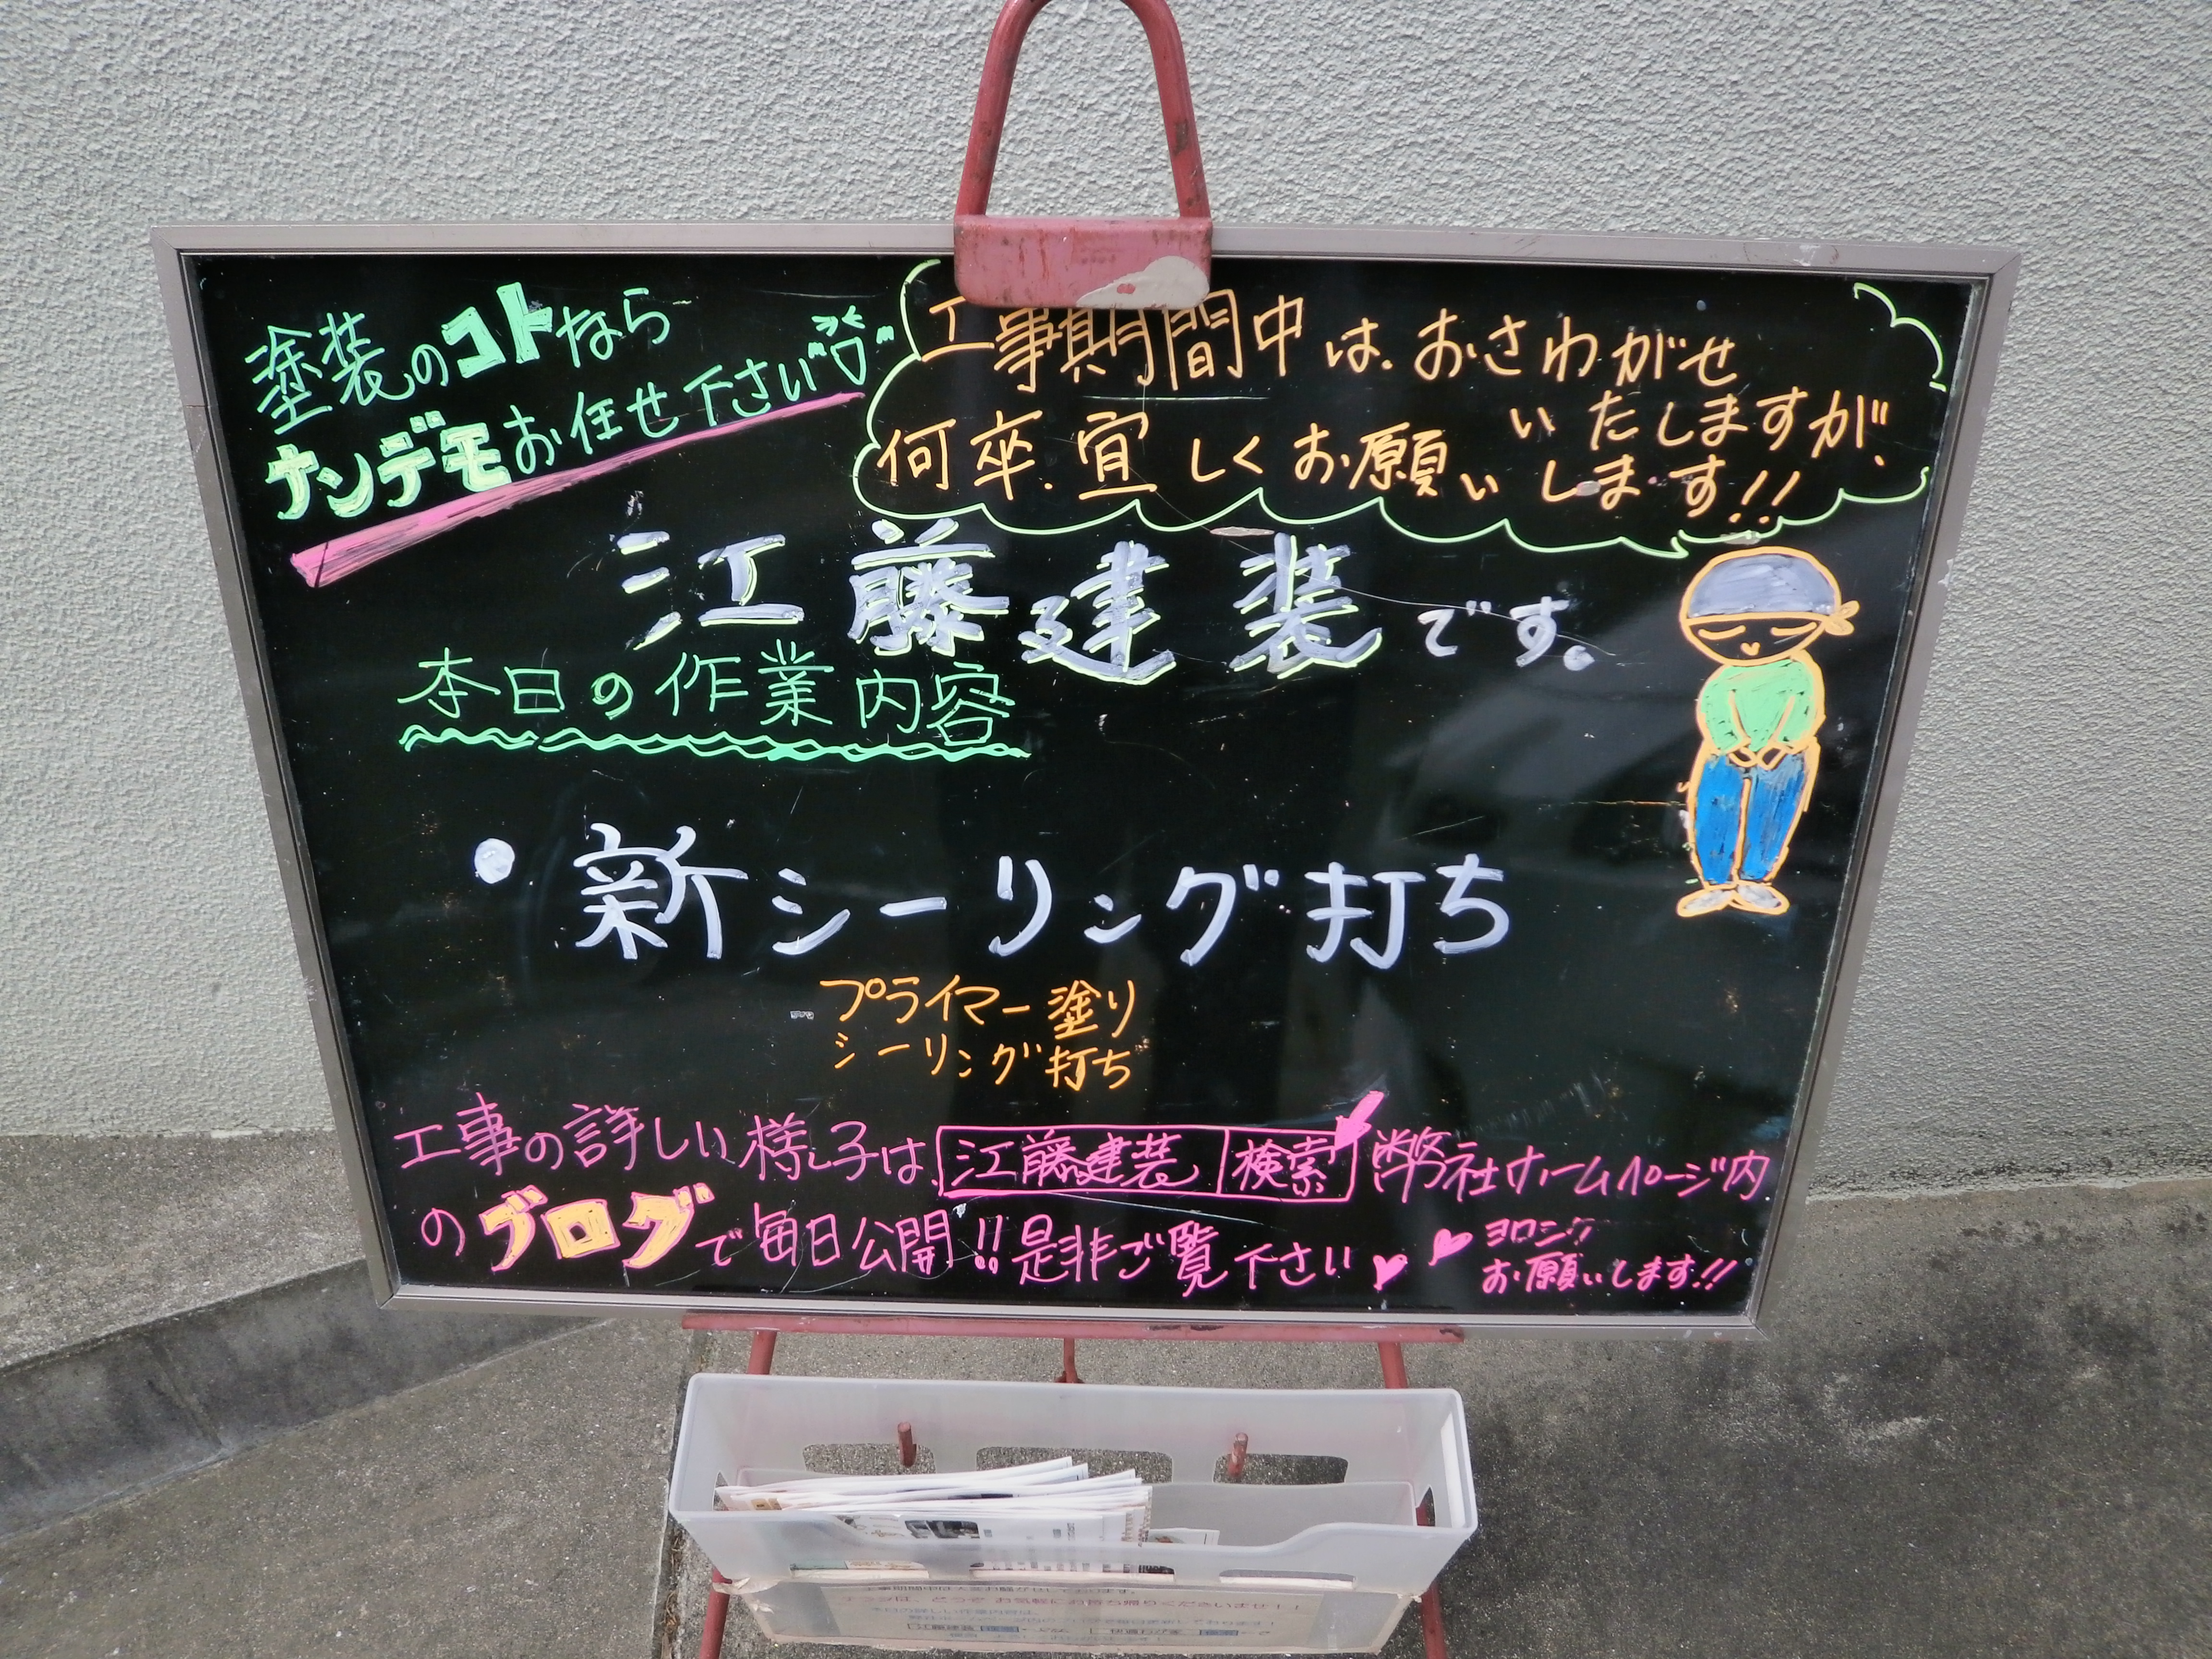 塗装のコトなら
ナンデモお任せ下さい
工事期間中は、おさわがせ
いたしますが、
何卒、宜しくお願いします!!
江藤建装です。
本日の作業内容
• 新シーリング打ち
プライマー塗り
シーリング打ち
工事の詳しい様子は、江藤建装 検索 弊社ホームページ内
のブログで毎日公開!!是非ご覧下さい
ヨロシク
お願いします!!